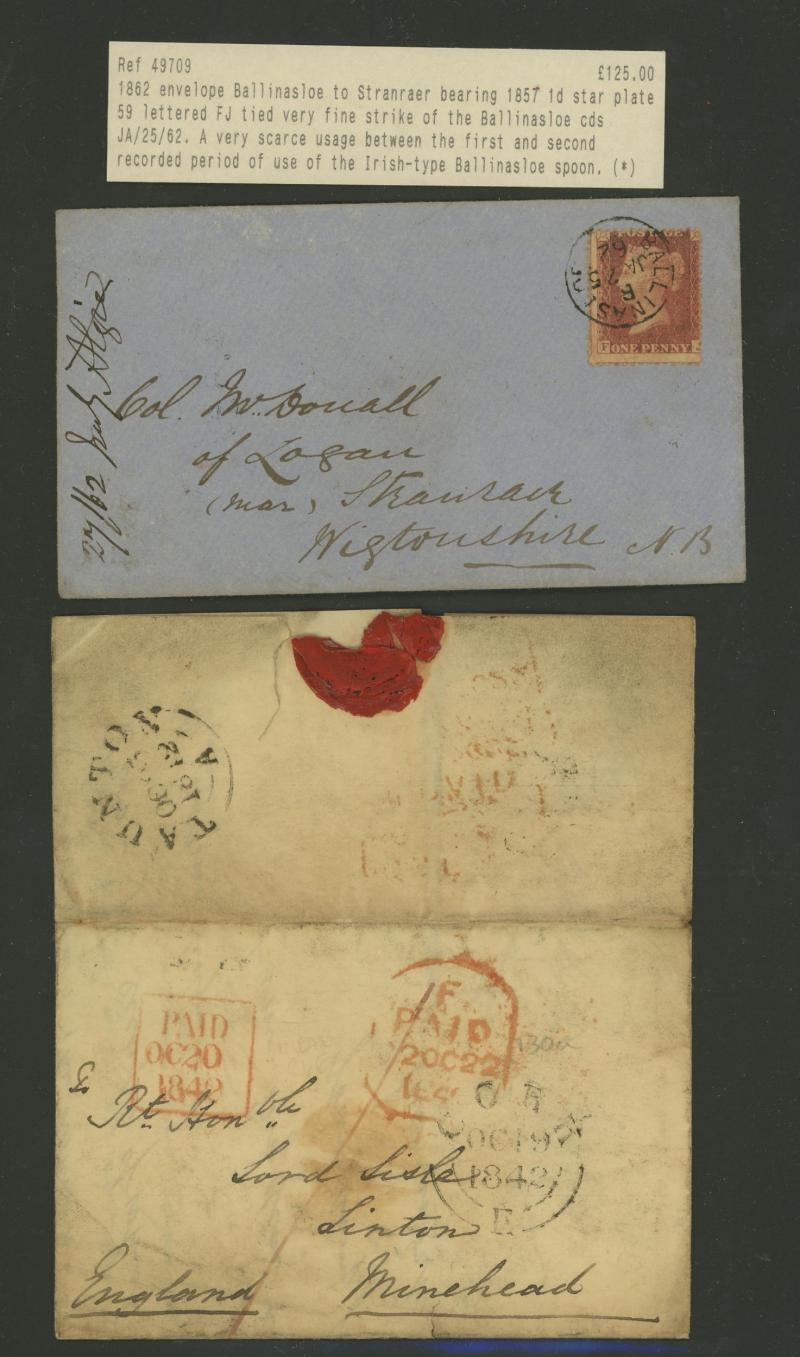 Ref 49709 £125.00
1862 envelope Ballinasloe to Stranraer bearing 1857 1d star plate
59 lettered FJ tied very fine strike of the Ballinasloe cds
JA/25/62. A very scarce usage between the first and second
recorded period of use of the Irish-type Ballinasloe spoon. (*)
BALLINASLOE
E
JA 25
62
POSTAGE
F ONE PENNY J
27/1/62
Col. McDouall
of Logan
(near) Stranraer
Wigtonshire N.B
TAUNTON
PAID
OC20
1842
1F
PAID
20C22
CORK
OC19
1842
E
Rt. Honble
Lord Lisle
Linton
England Minehead